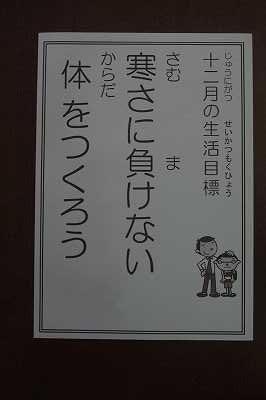 じゅうにがつ せいかつもくひょう
十二月の生活目標
さむ ま
寒さに負けない
からだ
体をつくろう